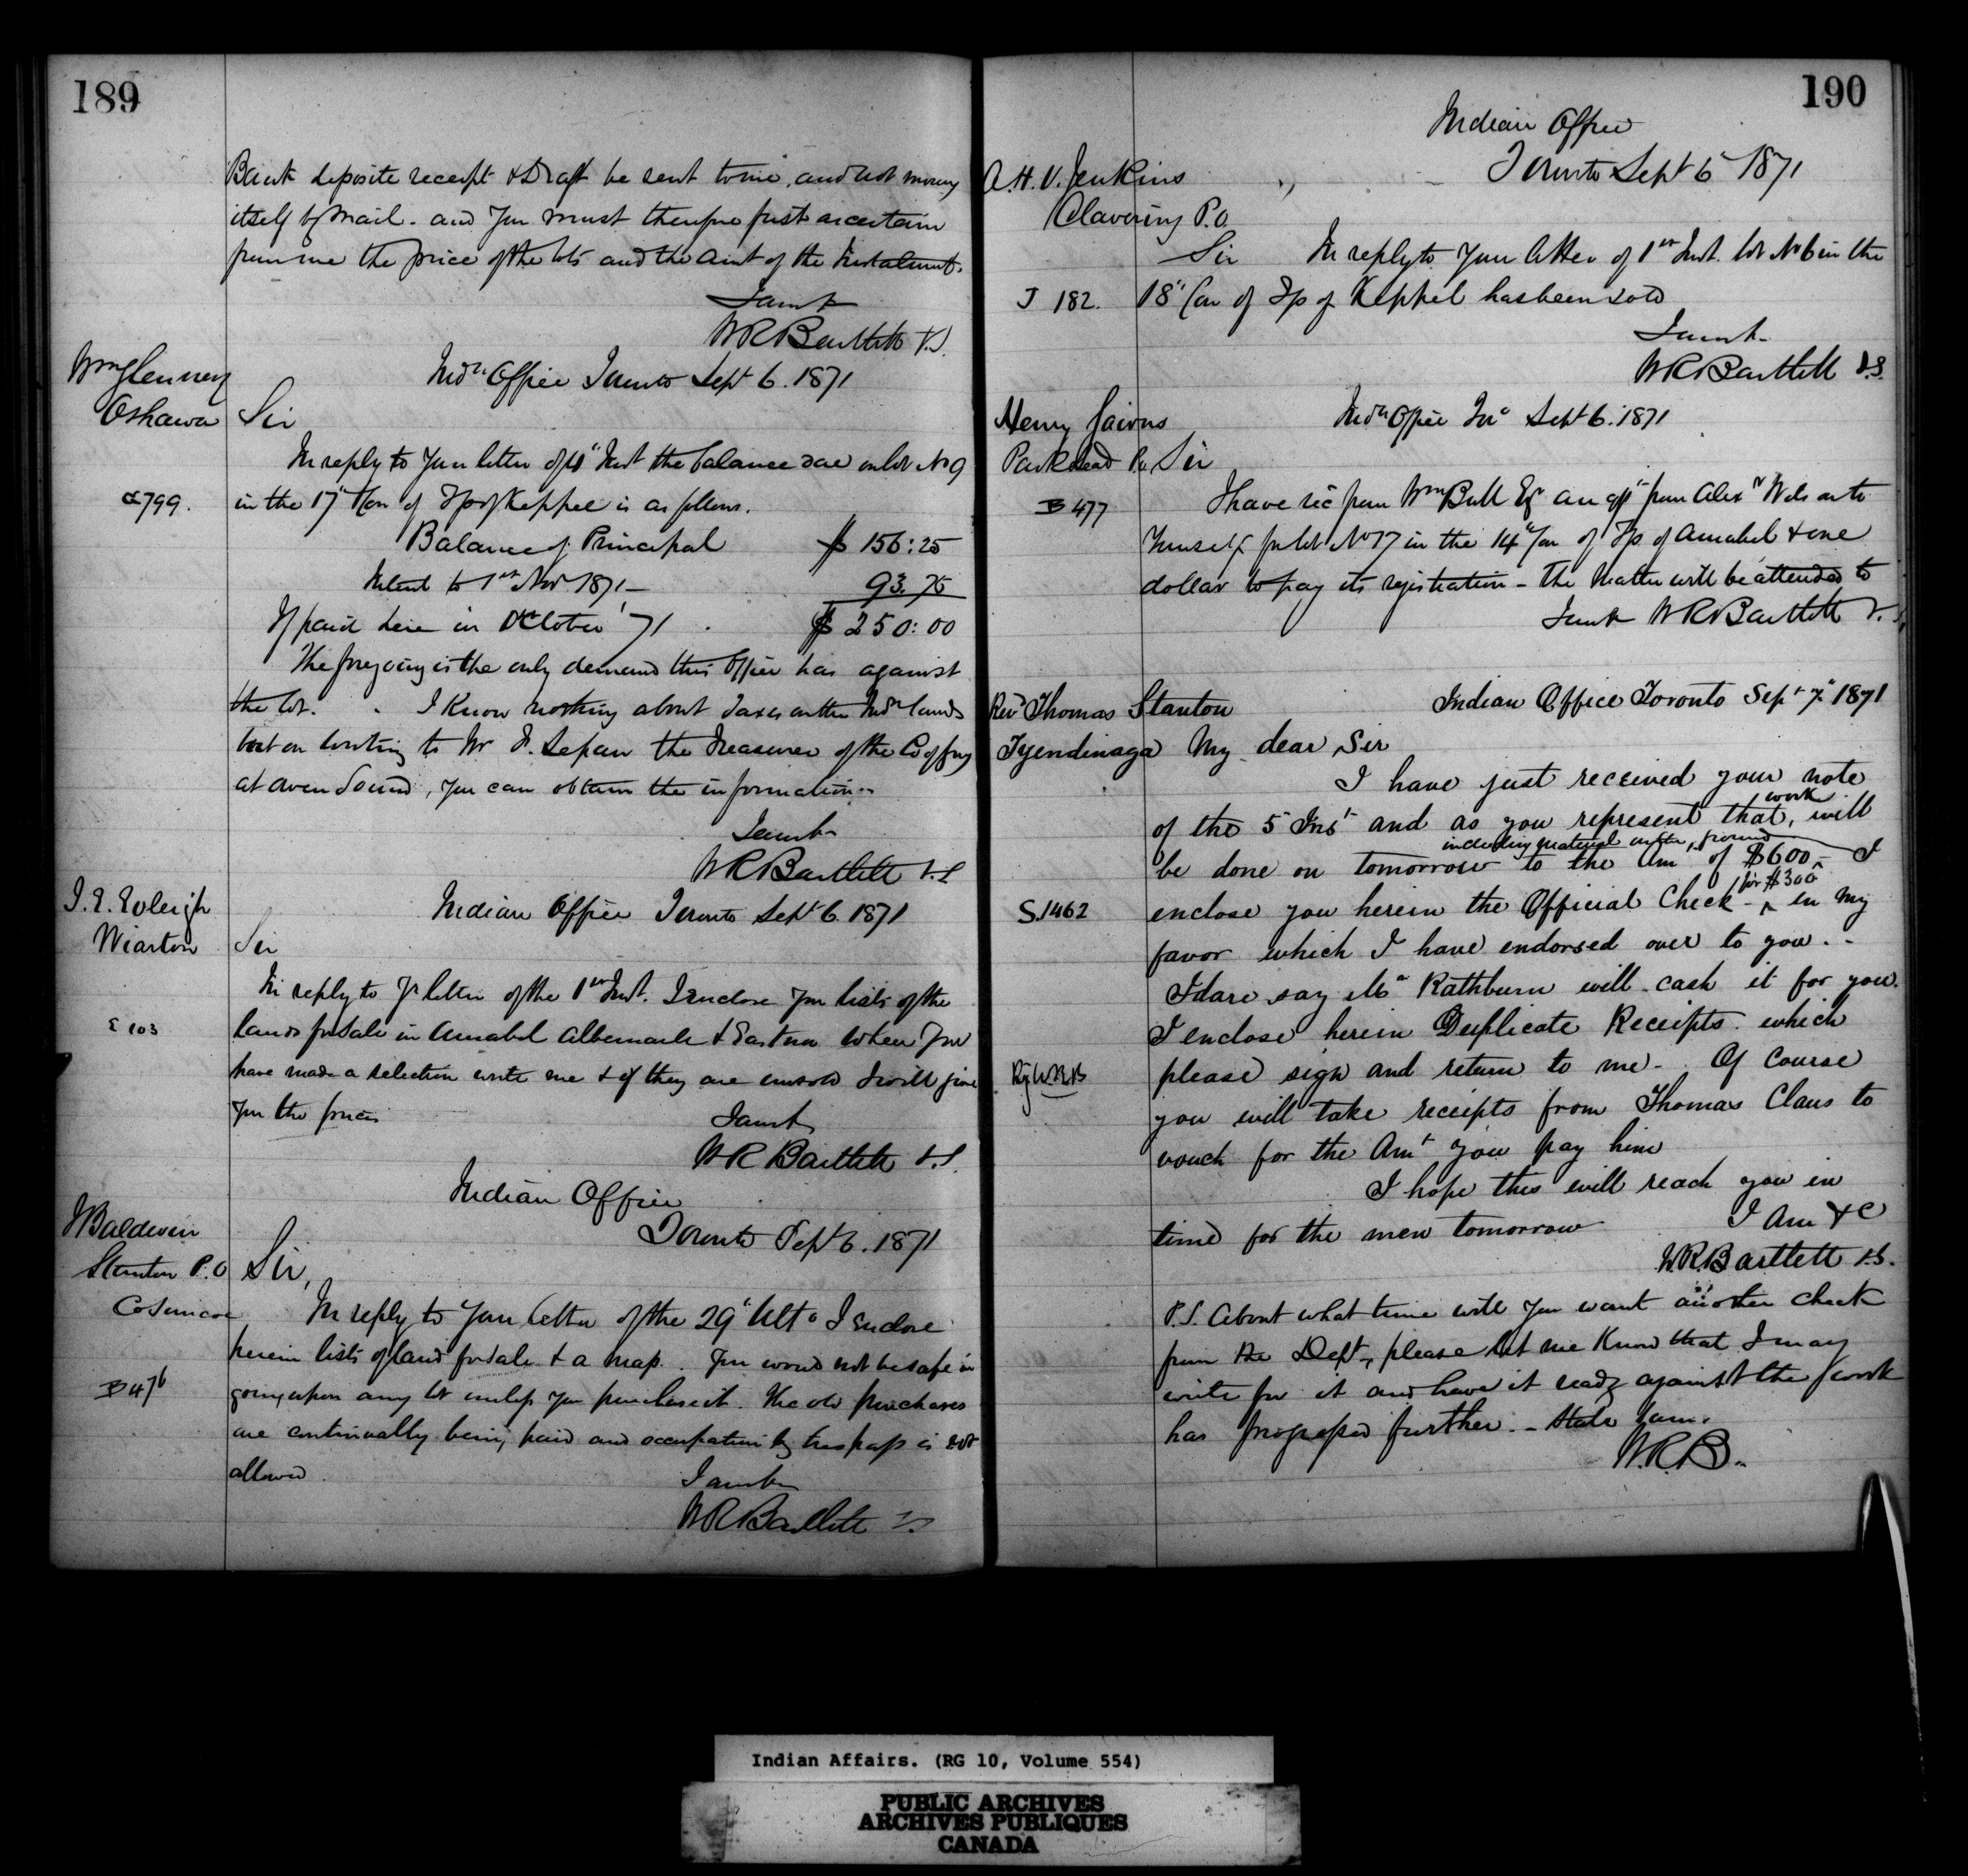 189
Bank deposite receipt & Draft be sent to me, and not money
itself by mail. and you must therefore first ascertain
from me the price of the lots and the Amt of the Instalment.
I am &c
WRBartlett V.S.
Wm Glenney
Oshawa
Indn Office Toronto Sept 6. 1871
Sir
In reply to your letter of Inst the balance due on lot No 9
799.
in the 17" Con of Tp of Keppel is as follows.
Balance of Principal $ 156:25
Interest to 1st Nov 1871 — 93.75
If paid here in October '71 . $ 250:00
The foregoing is the only demand this Office has against
the lot. I Know nothing about Taxes on the Indn lands
but on writing to Mr the Treasurer of the Co of Grey
at Owen Sound, you can obtain the information.
I am &c
WRBartlett V.S
Wiarton
Indian Office Toronto Sept 6. 1871
Sir
In reply to Yr letter of the 1st Inst. I enclose you lists of the
E 103
lands for Sale in Amabel Albemarle & Eastnor when you
have made a selection write me & if they are unsold I will give
you the prices
I am &c
WR Bartlett V.S.
Indian Office
Toronto Sept 6. 1871
J Baldwin
Stanton P.O
Co Simcoe
Sir,
In reply to your letter of the 29" Ulto I Enclose
herein lists of land for Sale & a map. You would not be safe in
B 476
going upon any lot unless you purchase it. The old purchases
are continually being paid and occupation by trespass is not
allowed
I am &c
WRBartlett
190
Indian Office
Toronto Sept 6" 1871
A.H.V. Jenkins
Clavering P.O.
Sir In reply to Your letter of 1st Inst. lot No 6 in the
J 182. 18" Con of Tp of Keppel has been sold
I am &c
WRBartlett V.S.
Indn Office Toro Sept 6. 1871
Henry
Park Head P.O
Sir
B 477
I have recd from Wm Bull Esq an asst from Alexr Wilson to
Yourself for lot No 17 in the 14" Con of Tp. of Amabel & one
dollar to pay its registration – The Matter will be attended to
I am &c WRBartlett V.S,
Indian Office Toronto Sept 7" 1871
Revd Thomas Stanton
Tyendinaga
My dear Sir
I have just received your note
of the 5" Inst and as you represent that work, will
including material on the ground
be done on tomorrow to the Amt of $600 – I
S.1462
enclose you herein the Official Check – for $300 in my
favor which I have endorsed over to you. -
I dare say Mr Rathburn will cash it for you.
I enclose herein Duplicate Receipts which
Rg W.R.B
please sign and return to me – Of Course
you will take receipts from Thomas Claus to
vouch for the Amt you pay him
I hope this will reach you in
time for the men tomorrow I Am &c
W.R.Bartlett V.S.
P.S. About what time will you want another check
from the Dept, please let me Know that I may
write for it and have it ready against the work
has progressed further. - State Sum.
W.R.B.
Indian Affairs. (RG 10, Volume 554)
PUBLIC ARCHIVES
ARCHIVES PUBLIQUES
CANADA